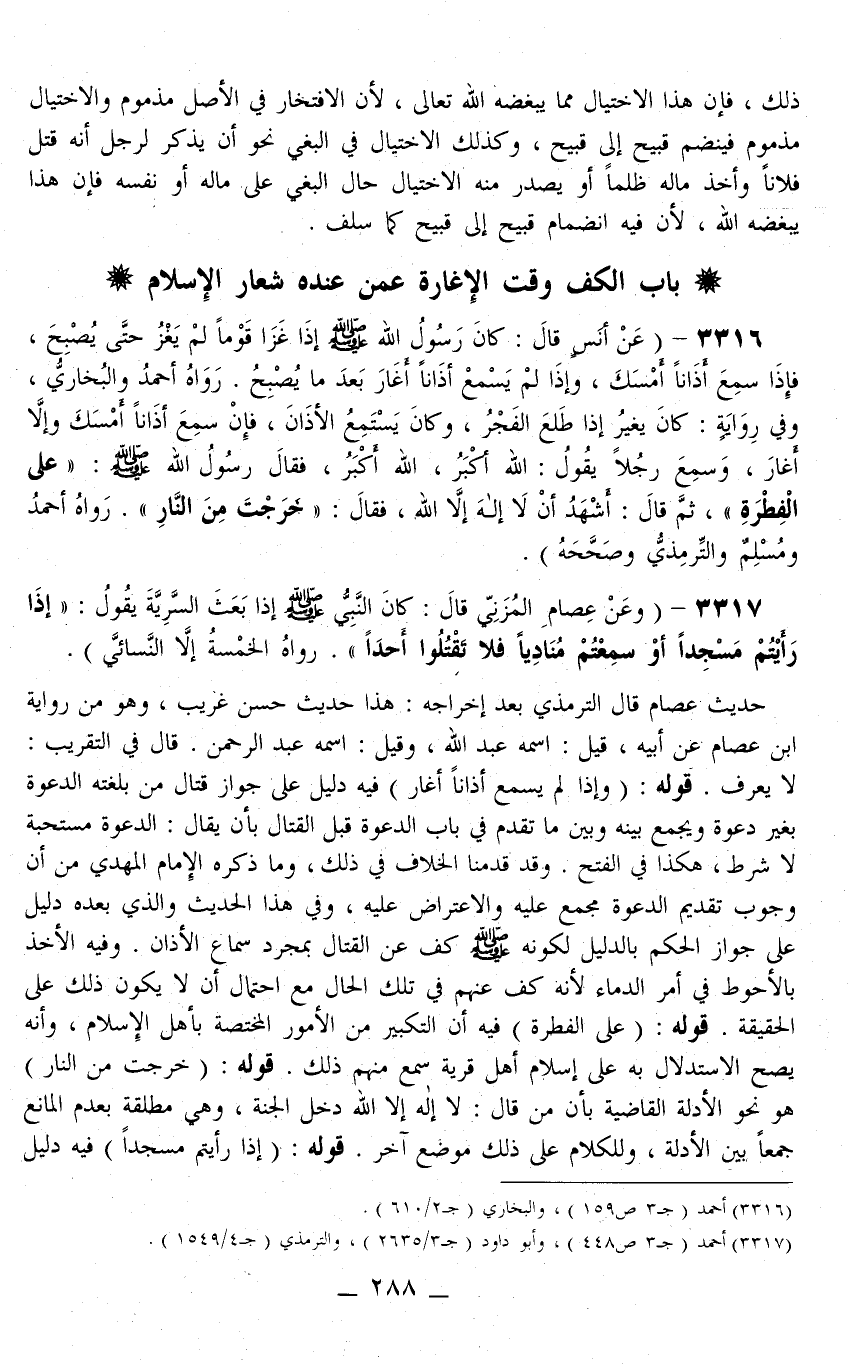 ذلك ، فإن هذا الاختيال مما يبغضه الله تعالى ، لأن الافتخار في الأصل مذموم والاختيال
مذموم فينضم قبيح إلى قبيح ، وكذلك الاختيال في البغي نحو أن يذكر لرجل أنه قتل
فلاناً وأخذ ماله ظلماً أو يصدر منه الاختيال حال البغي على ماله أو نفسه فإن هذا
يبغضه الله ، لأن فيه انضمام قبيح إلى قبيح كما سلف .
باب الكف وقت الإغارة عمن عنده شعار الإسلام
٣٣١٦ – ( عَنْ أنَسٍ قالَ : كانَ رَسُولُ الله ﷺ إذَا غَزَا قَوْماً لمْ يَغْزُ حتَّى يُصْبِحَ ،
فإذَا سمِعَ أَذَاناً أَمْسَكَ ، وإذَا لمْ يَسْمعْ أذَاناً أَغَارَ بَعدَ ما يُصْبِحُ . رَوَاهُ أحمدُ والبُخاريُّ ،
وفي رِوَايَةٍ : كانَ يغيرُ إذا طَلعَ الفَجْرُ ، وكانَ يَسْتَمِعُ الأذَانَ ، فإنْ سمِعَ أذَاناً أَمْسَكَ وإلَّا
أَغارَ ، وَسمِعَ رجُلاً يقُولُ : الله أكْبَرُ ، الله أَكْبَرُ ، فقالَ رسُولُ الله ﷺ : « على
الْفِطْرَةِ » ، ثمَّ قالَ : أَشْهَدُ أنْ لَا إلـهَ إلَّا الله ، فقالَ : « خَرَجْتَ مِنَ النَّارِ » . رَواهُ أحمدُ
ومُسْلِمٌ والتِّرمِذيُّ وصَحَّحَهُ ) .
٣٣١٧ – ( وعَنْ عِصامٍ المُزَنِيّ قالَ : كانَ النَّبِيُّ ﷺ إذا بَعَثَ السَّرِيَّةَ يقُولُ : « إذَا
رَأَيْتُمْ مَسْجِداً أوْ سمِعْتُمْ مُنَادِياً فلا تَقْتُلُوا أَحدَاً » . رواهُ الخمْسةُ إلَّا النَّسائيَّ ) .
حديث عصام قال الترمذي بعد إخراجه : هذا حديث حسن غريب ، وهو من رواية
ابن عصام عن أبيه ، قيل : اسمه عبد الله ، وقيل : اسمه عبد الرحمن . قال في التقريب :
لا يعرف . قوله : ( وإذا لم يسمع أذاناً أغار ) فيه دليل على جواز قتال من بلغته الدعوة
بغير دعوة ويجمع بينه وبين ما تقدم في باب الدعوة قبل القتال بأن يقال : الدعوة مستحبة
لا شرط ، هكذا في الفتح . وقد قدمنا الخلاف في ذلك ، وما ذكره الإمام المهدي من أن
وجوب تقديم الدعوة مجمع عليه والاعتراض عليه ، وفي هذا الحديث والذي بعده دليل
على جواز الحكم بالدليل لكونه ﷺ كف عن القتال بمجرد سماع الأذان . وفيه الأخذ
بالأحوط في أمر الدماء لأنه كف عنهم في تلك الحال مع احتمال أن لا يكون ذلك على
الحقيقة . قوله : ( على الفطرة ) فيه أن التكبير من الأمور المختصة بأهل الإسلام ، وأنه
يصح الاستدلال به على إسلام أهل قرية سمع منهم ذلك . قوله : ( خرجت من النار )
هو نحو الأدلة القاضية بأن من قال : لا إلٰه إلا الله دخل الجنة ، وهي مطلقة بعدم المانع
جمعاً بين الأدلة ، وللكلام على ذلك موضع آخر . قوله : ( إذا رأيتم مسجداً ) فيه دليل
(٣٣١٦) أحمد ( جـ٣ ص١٥٩ ) ، والبخاري ( جـ٦١٠/٢ ) .
(٣٣١٧) أحمد ( جـ٣ ص٤٤٨ ) ، وأبو داود ( جـ٢٦٣٥/٣ ) ، والترمذي ( جـ١٥٤٩/٤ ) .
— ٢٨٨ —